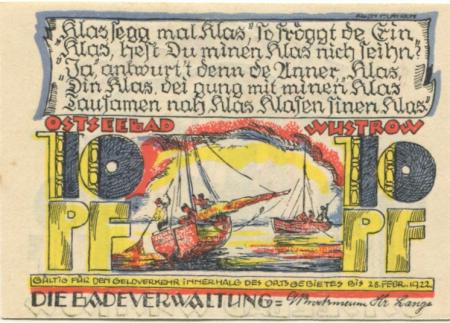 "Klas segg mal Klas", so fröggt de Ein
"Klas, hest Du minen Klas nich seihn?"
"Ja" antwurt't denn de Anner "Klas,
Din Klas, dei gung mit minen Klas
Tausamen nah Klas Klasen sinen Klas"
OSTSEEBAD WUSTROW
10 10
PF PF
GÜLTIG FÜR DEN GELDVERKEHR INNERHALB DES ORTSGEBIETES BIS 28. FEBR. 1922.
DIE BADEVERWALTUNG =